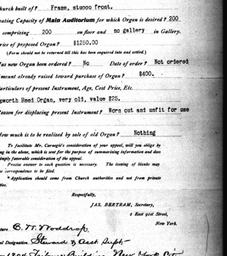 hurch built of? Frame, stucco front.
eating Capacity of Main Auditorium for which Organ is desired? 200
comprising 200 on floor and no gallery in Gallery.
rice of proposed Organ? $1250.00
(Form should not be returned till this has been enquired into and settled.)
as new Organ been ordered? No Date of order? Not ordered
mount already raised toward purchase of Organ? $400.
articulars of present Instrument, Age, Cost Price, Etc.
gworth Reed Organ, very old, value $25.
eason for displacing present Instrument? Worn out and unfit for use
ow much is to be realized by sale of old Organ? Nothing
To facilitate Mr. Carnegie's consideration of your appeal, will you oblige by
ing in the above, which is sent for the purpose of summarizing information and does
imply favorable consideration of the appeal.
Precise answer to each question is necessary. The issuing of blanks may
correspondence to be filed.
* Application should come from Church authorities and not from private
Respectfully,
JAS. BERTRAM, Secretary,
2 East 91st Street,
New York.
ature: E. W. Woddrop
ial Designation. Steward & Asst Supt
Building, New York